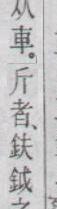 从車。斤者、鈇鉞之